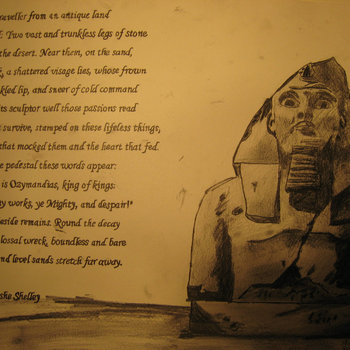 traveller from an antique land
Two vast and trunkless legs of stone
the desert. Near them, on the sand,
a shattered visage lies, whose frown
lip, and sneer of cold command
its sculptor well those passions read
survive, stamped on these lifeless things,
that mocked them and the heart that fed.
pedestal these words appear:
is Ozymandias, king of kings:
works, ye Mighty, and despair!"
remains. Round the decay
wreck, boundless and bare
level sands stretch far away.
Shelley